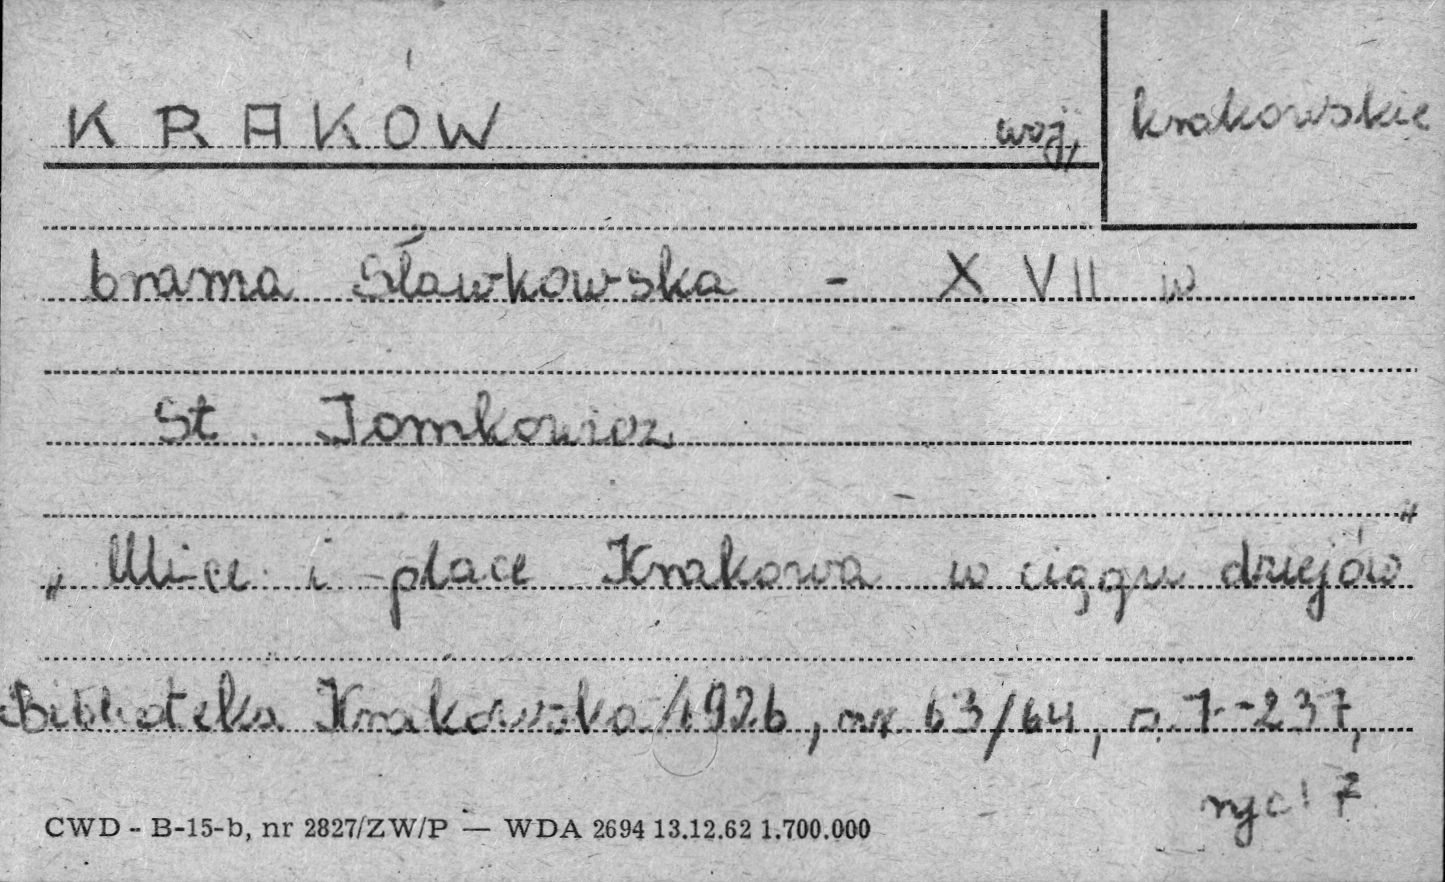 KRAKÓW woj, krakowskie
brama Sławkowska - XVII w
St. Tomkowicz
„Ulice i place Krakowa w ciągu dziejów”
Biblioteka Krakowska 1926, nr 63/64, s. 7-237,
ryc. 7
CWD - B-15-b, nr 2827/ZW/P — WDA 2694 13.12.62 1.700.000